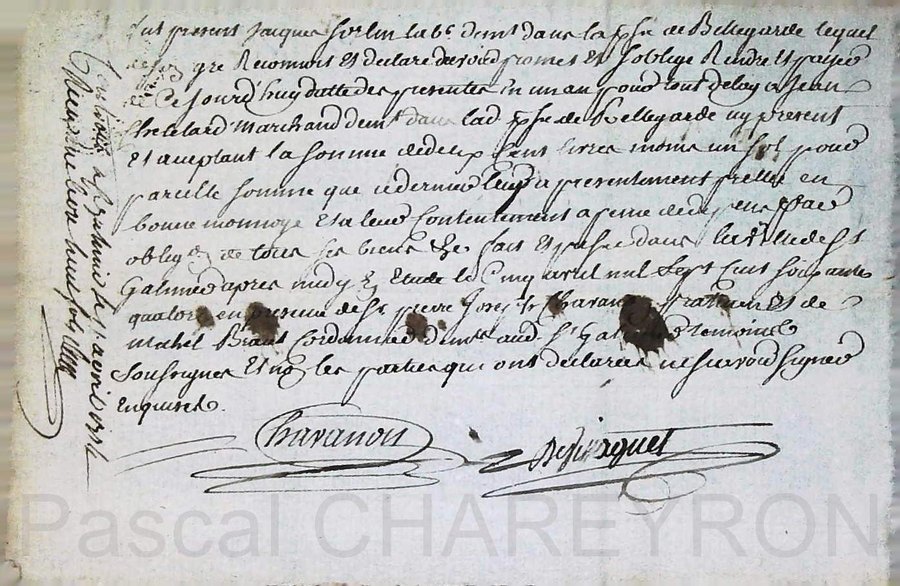 fut present Jacques lab^r dem^t dans la p^sse de Bellegarde lequel
de gré Reconnoit Et declare devoir promet Et soblige Rendre Et payer
de Ce jourd'huy datte des presentes En un an pour tout delay a Jean
marchand dem^t dans lad p^sse de Bellegarde icy present
Et aceptant la somme de deux Cent livres moins un sol pour
pareille somme que ce dernier luy a presentement prette en
bonne monnoye Et a leur Contentement a peine de depens par
oblig^on de tous ses biens &c fait Et passé dans la ville de S^t
Galmier apres midy Etude le Cinq avril mil Sept Cent Soixante
quatorze en presence de S^r pierre Chavanon praticien Et de
michel Cordonnier dem^ts aud S^t Galmier temoins
Soussignes Et non les parties qui ont declarées ne sçavoir signer
Enquises.
Chavanon
Controllé a S^t galmier le avril 1774
Reçu livre neuf sols
Pascal CHAREYRON